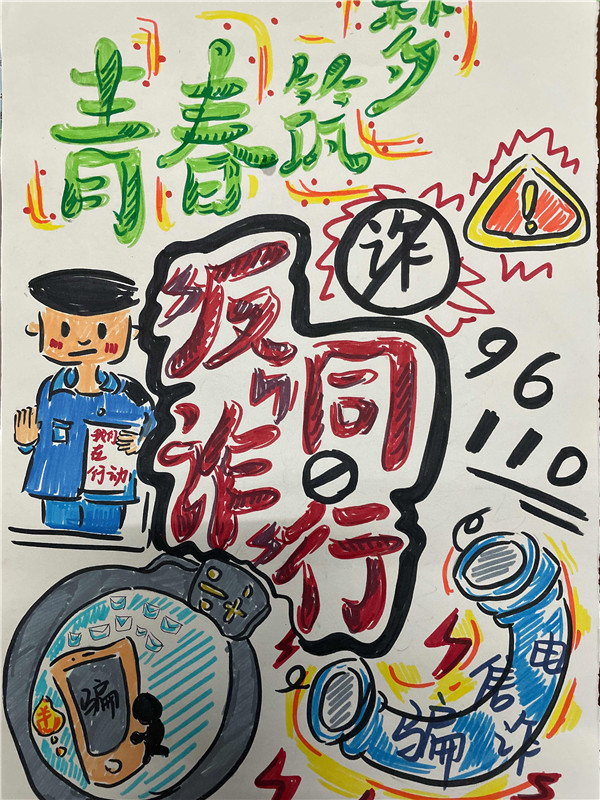 青春筑梦
诈
!
反诈
同行
96
110
我们
在
行动
骗
电
信
骗诈